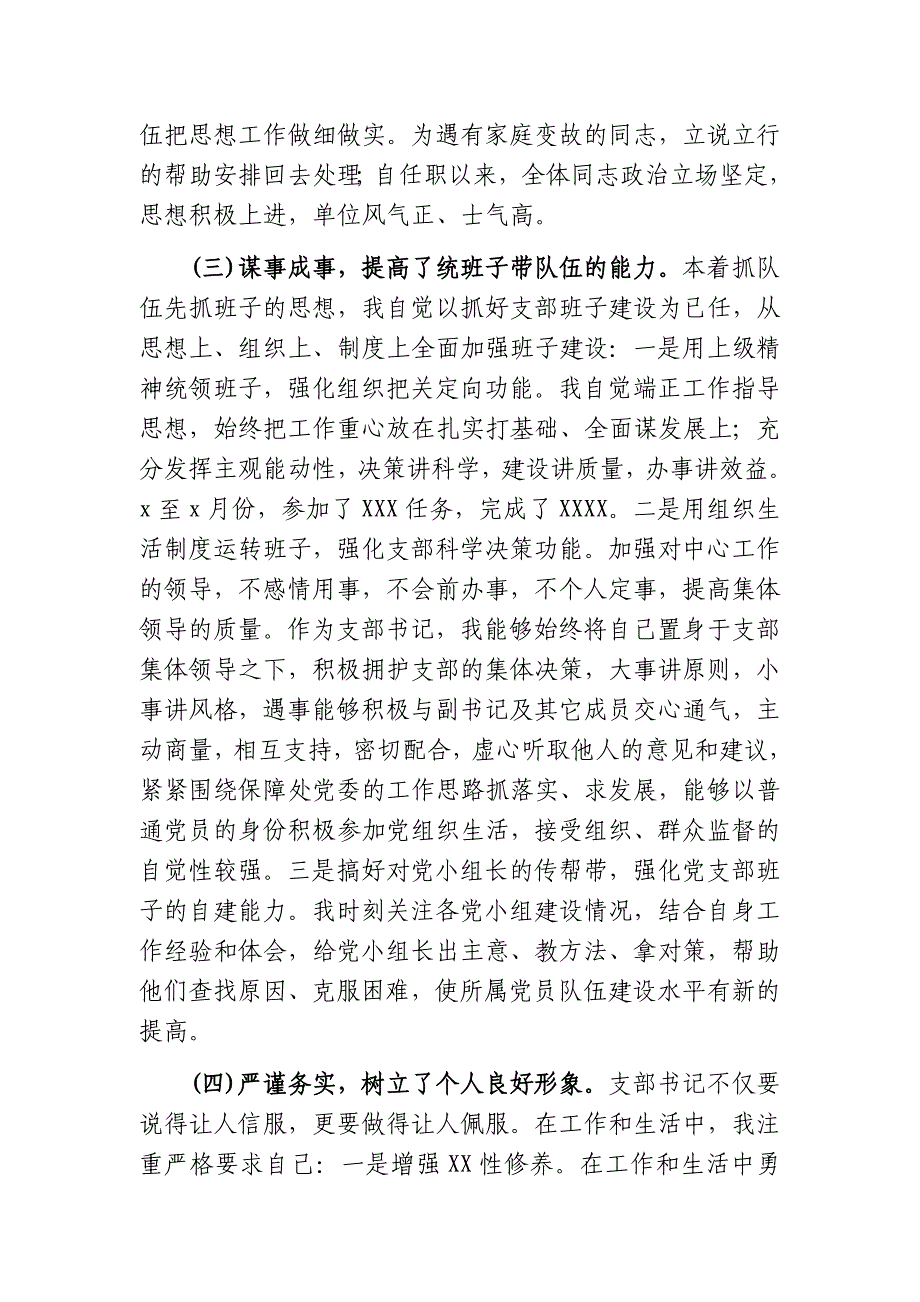 伍把思想工作做细做实。为遇有家庭变故的同志，立说立行
的帮助安排回去处理；自任职以来，全体同志政治立场坚定，
思想积极上进，单位风气正、士气高。
(三)谋事成事，提高了统班子带队伍的能力。本着抓队
伍先抓班子的思想，我自觉以抓好支部班子建设为已任，从
思想上、组织上、制度上全面加强班子建设：一是用上级精
神统领班子，强化组织把关定向功能。我自觉端正工作指导
思想，始终把工作重心放在扎实打基础、全面谋发展上；充
分发挥主观能动性，决策讲科学，建设讲质量，办事讲效益。
x 至 x 月份，参加了 XXX 任务，完成了 XXXX。二是用组织生
活制度运转班子，强化支部科学决策功能。加强对中心工作
的领导，不感情用事，不会前办事，不个人定事，提高集体
领导的质量。作为支部书记，我能够始终将自己置身于支部
集体领导之下，积极拥护支部的集体决策，大事讲原则，小
事讲风格，遇事能够积极与副书记及其它成员交心通气，主
动商量，相互支持，密切配合，虚心听取他人的意见和建议，
紧紧围绕保障处党委的工作思路抓落实、求发展，能够以普
通党员的身份积极参加党组织生活，接受组织、群众监督的
自觉性较强。三是搞好对党小组长的传帮带，强化党支部班
子的自建能力。我时刻关注各党小组建设情况，结合自身工
作经验和体会，给党小组长出主意、教方法、拿对策，帮助
他们查找原因、克服困难，使所属党员队伍建设水平有新的
提高。
(四)严谨务实，树立了个人良好形象。支部书记不仅要
说得让人信服，更要做得让人佩服。在工作和生活中，我注
重严格要求自己：一是增强 XX 性修养。在工作和生活中勇